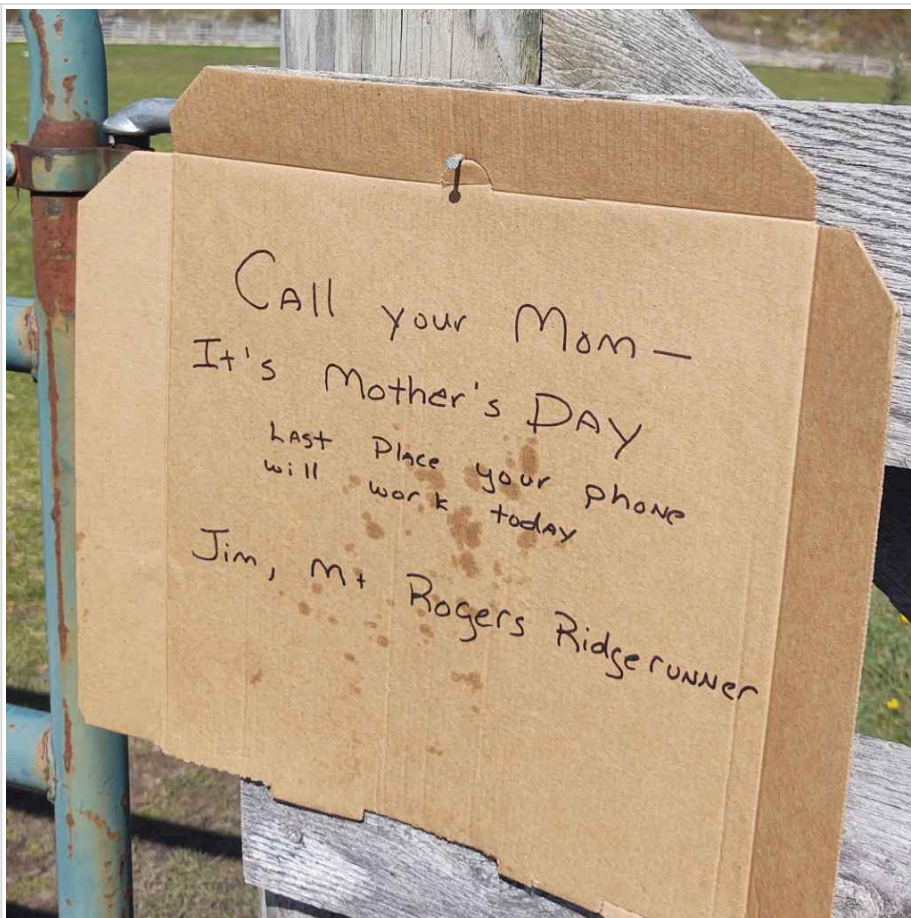 Call your Mom —
It's Mother's Day
Last Place your phone
will work today
Jim, Mt Rogers Ridgerunner